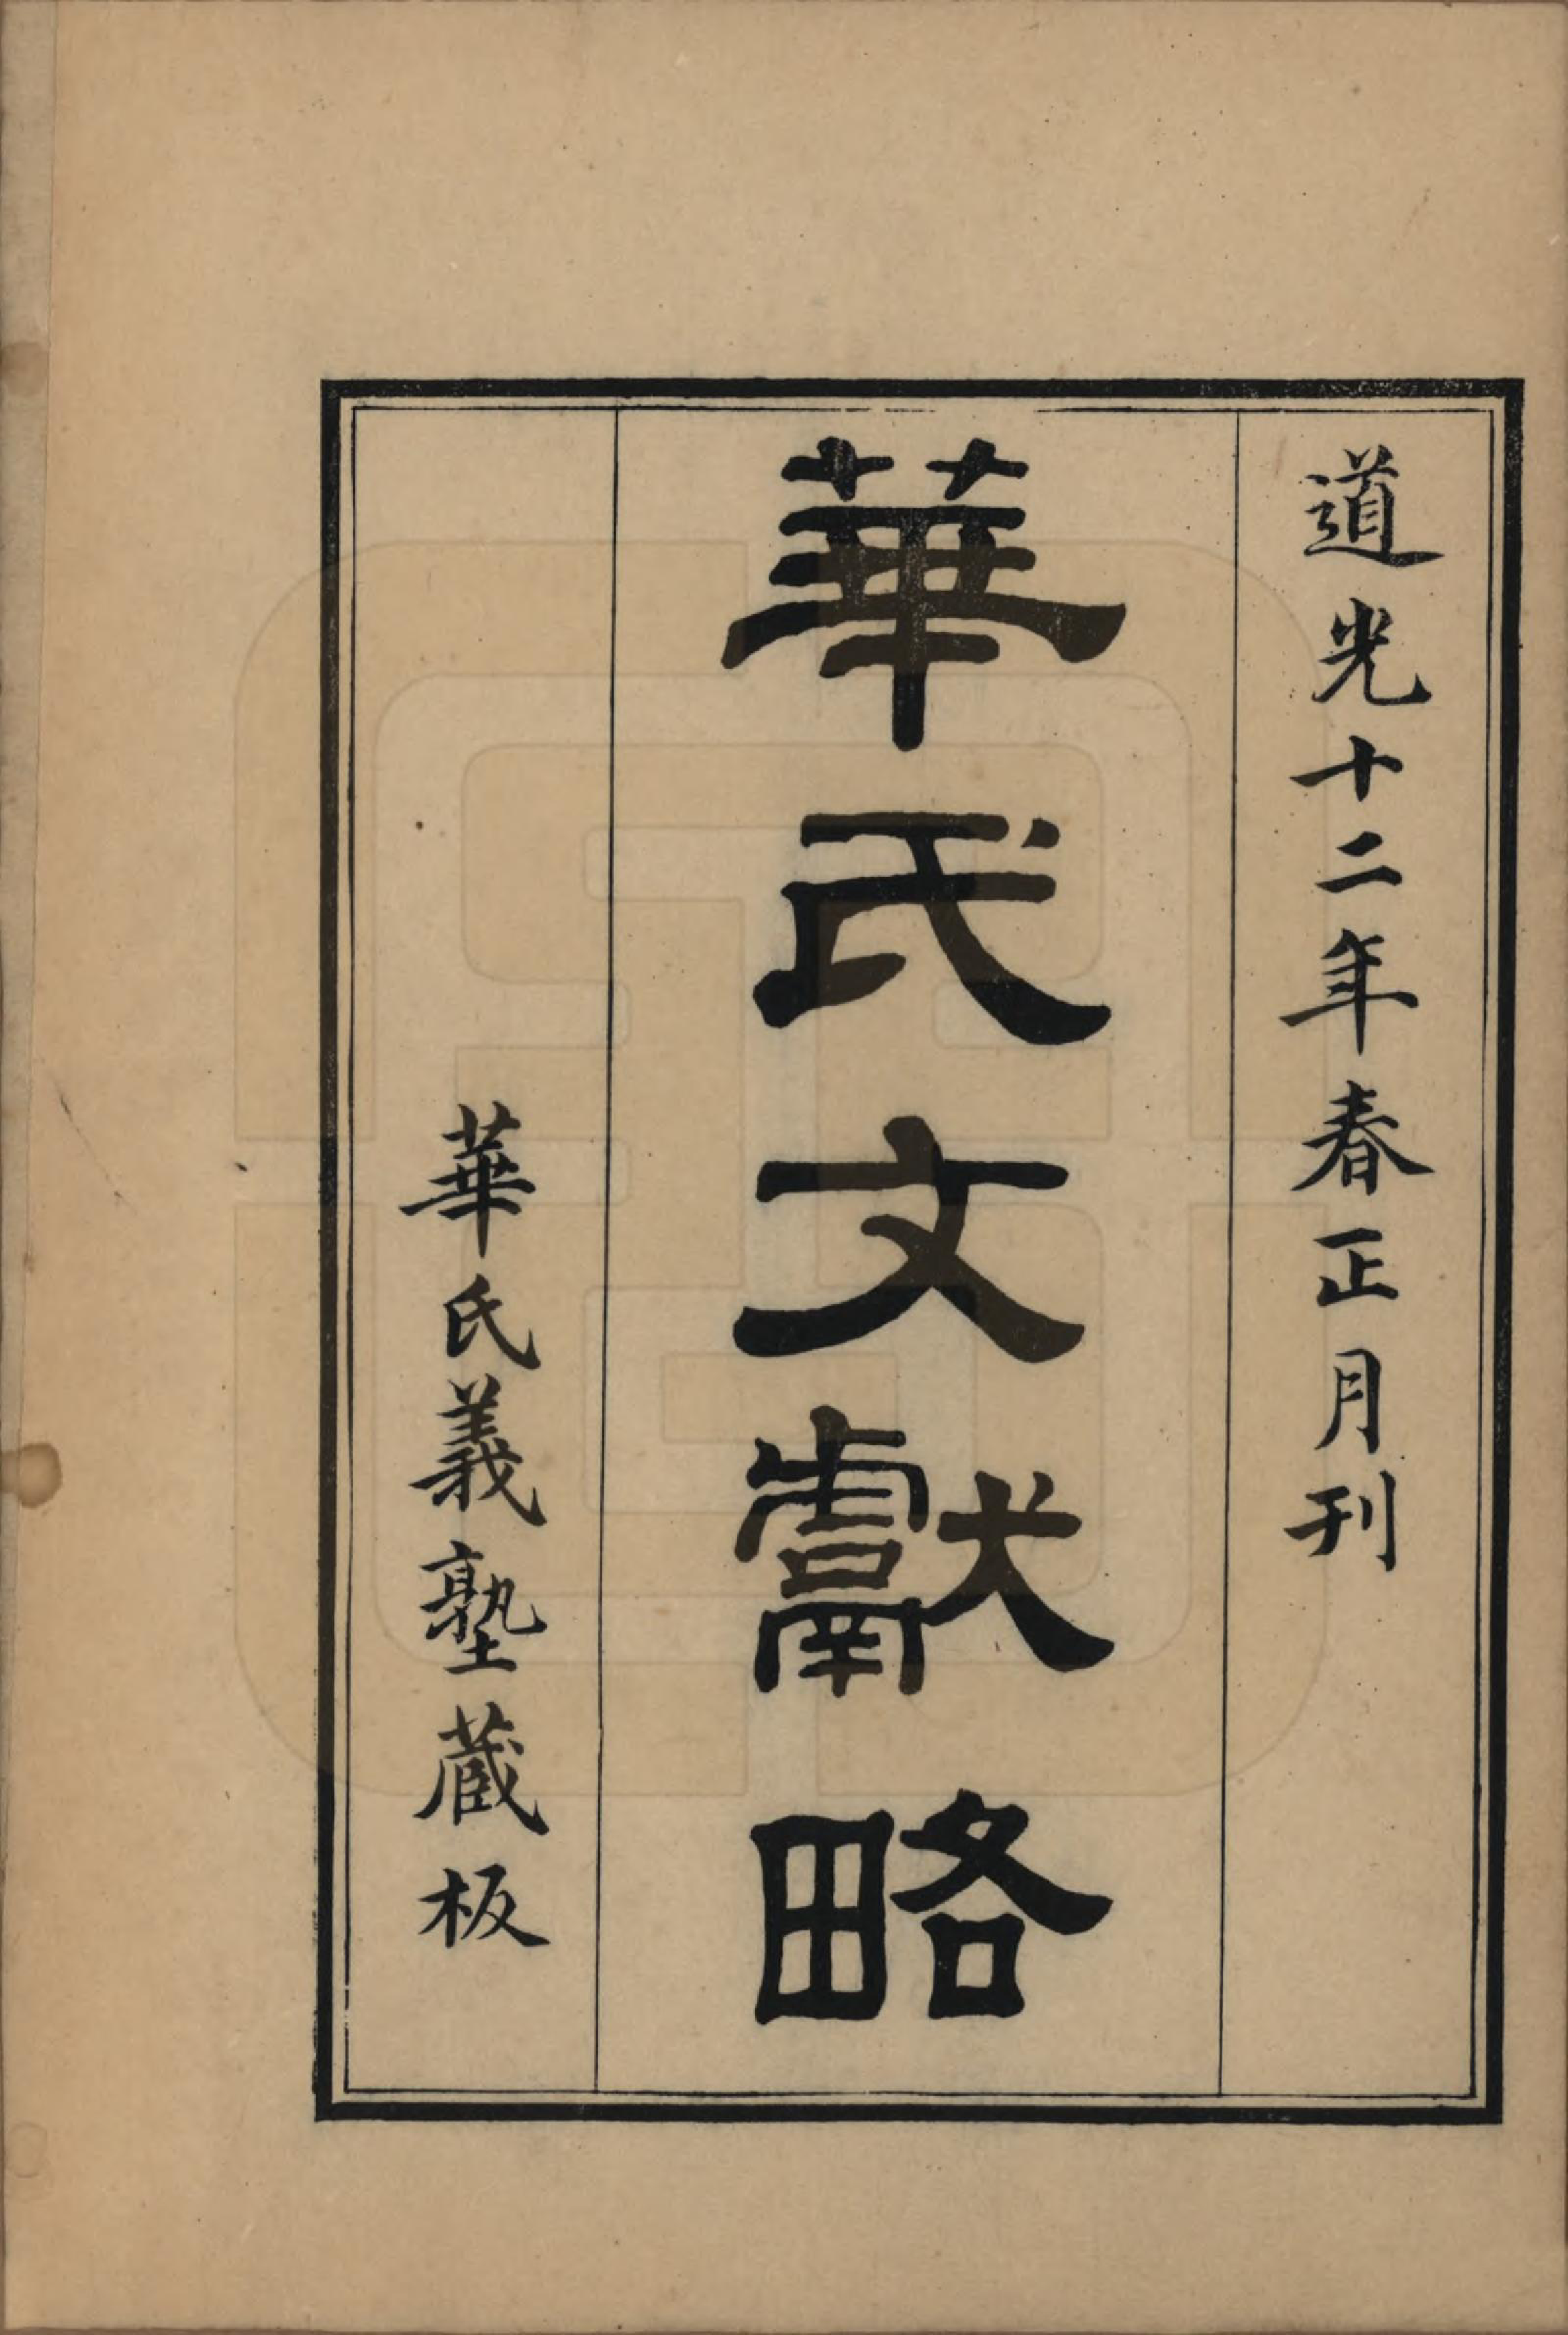 道光十二年春正月刊
華氏文獻略
華氏義塾蔵板